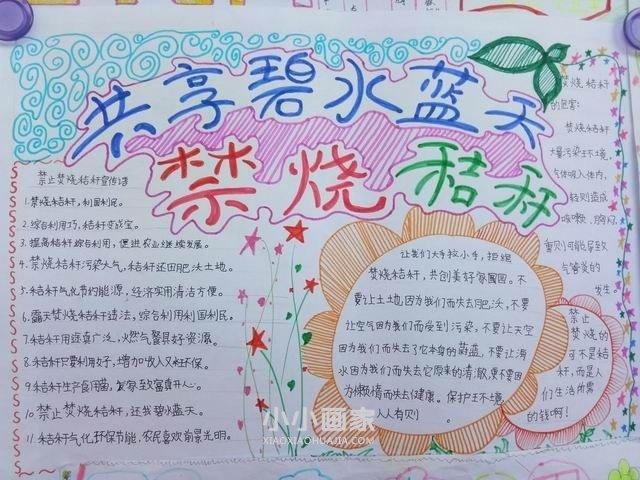 共享碧水蓝天
禁烧秸秆
禁止焚烧秸秆宣传语
1.焚烧秸秆,利国利民。
2.综合利用巧,秸秆变成宝。
3.提高秸秆综合利用,促进农业继续发展。
4.焚烧秸秆污染大气,秸秆还田肥沃土地。
5.秸秆气化节约能源,经济实用清洁方便。
6.露天焚烧秸秆违法,综合利用利国利民。
7.秸秆用途真广泛,火燃气餐具好资源。
8.秸秆只要利用好,增加收入又环保。
9.秸秆生产食用菌,发家致富春开心。
10.禁止焚烧秸秆,还我碧水蓝天。
11.秸秆气化环保节能,农民喜欢前景光明。
让我们大手拉小手,拒绝
焚烧秸秆,共创美好家园。不
要让土地因为我们而失去肥沃,不要
让空气因为我们而受到污染,不要让天空
因为我们而失去了它本身的蔚蓝,不要让海
水因为我们而失去它原来的清澈,更不要因
为懒惰而失去健康。保护环境
人人有则!
焚烧秸秆
的危害:
焚烧秸秆
大量污染环境,
气体吸入体内,
轻则造成
咳嗽、胸闷
重则可能导致
气管炎的
发生。
禁止
焚烧的
可不是秸
秆,而是人
们生活所需
的钱啊!
小小画家
XIAOXIAOHUAJIA.COM